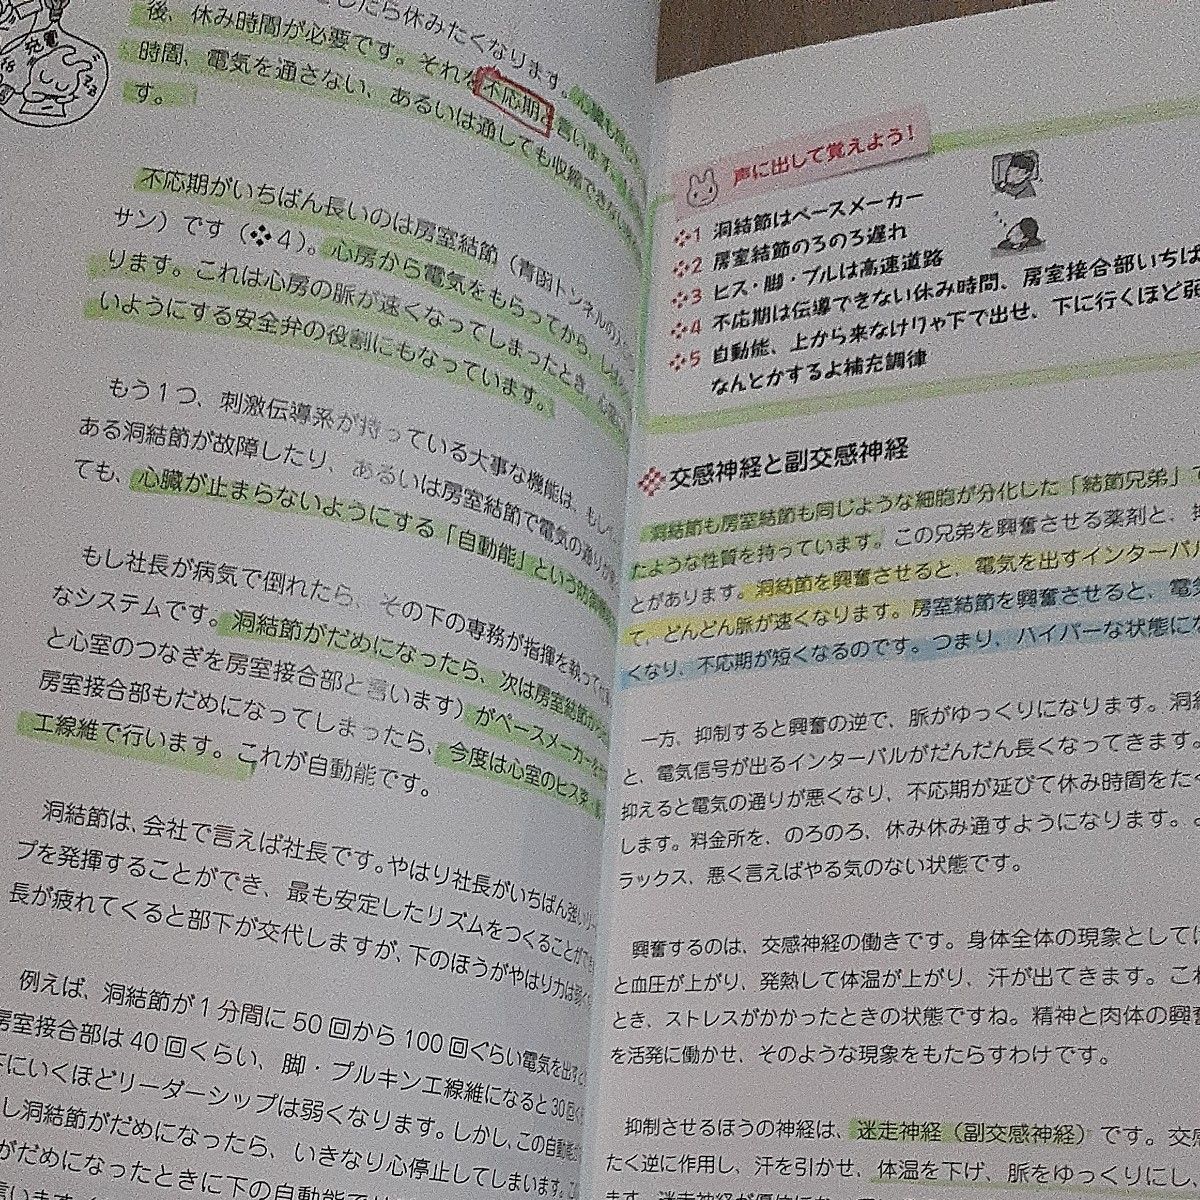 したら休みたくなります。
後、休み時間が必要です。それを不応期と言います。
時間、電気を通さない、あるいは通しても収縮できない
す。
不応期がいちばん長いのは房室結節（青函トンネルの
サン）です（❖4）。心房から電気をもらってから、し
ります。これは心房の脈が速くなってしまったとき、心
いようにする安全弁の役割にもなっています。
もう1つ、刺激伝導系が持っている大事な機能は、もし
ある洞結節が故障したり、あるいは房室結節で電気の通りが
ても、心臓が止まらないようにする「自動能」という防御
もし社長が病気で倒れたら、その下の専務が指揮を執って
なシステムです。洞結節がだめになったら、次は房室結節が
と心室のつなぎを房室接合部と言います）がペースメーカーを
房室接合部もだめになってしまったら、今度は心室のヒス束・
工線維で行います。これが自動能です。
洞結節は、会社で言えば社長です。やはり社長がいちばん強いリー
プを発揮することができ、最も安定したリズムをつくることができ
長が疲れてくると部下が交代しますが、下のほうがやはり力は弱く
例えば、洞結節が1分間に50回から100回ぐらい電気を出すと
房室接合部は40回くらい、脚・プルキン工線維になると30回
下にいくほどリーダーシップは弱くなります。しかし、この自動能が
し洞結節がだめになったら、いきなり心停止してしまいます。
がだめになったときに下の自動能で
言います
声に出して覚えよう！
❖1 洞結節はペースメーカー
❖2 房室結節のろのろ遅れ
❖3 ヒス・脚・プルは高速道路
❖4 不応期は伝導できない休み時間、房室接合部いちば
❖5 自動能、上から来なけりゃ下で出せ、下に行くほど弱
なんとかするよ補充調律
交感神経と副交感神経
洞結節も房室結節も同じような細胞が分化した「結節兄弟」で
たような性質を持っています。この兄弟を興奮させる薬剤と、抑
とがあります。洞結節を興奮させると、電気を出すインターバル
て、どんどん脈が速くなります。房室結節を興奮させると、電気
くなり、不応期が短くなるのです。つまり、ハイパーな状態にな
一方、抑制すると興奮の逆で、脈がゆっくりになります。洞結
と、電気信号が出るインターバルがだんだん長くなってきます。
抑えると電気の通りが悪くなり、不応期が延びて休み時間をたく
します。料金所を、のろのろ、休み休み通すようになります。
ラックス、悪く言えばやる気のない状態です。
興奮するのは、交感神経の働きです。身体全体の現象としては
と血圧が上がり、発熱して体温が上がり、汗が出てきます。これ
とき、ストレスがかかったときの状態ですね。精神と肉体の興奮
を活発に働かせ、そのような現象をもたらすわけです。
抑制させるほうの神経は、迷走神経（副交感神経）です。交感
たく逆に作用し、汗を引かせ、体温を下げ、脈をゆっくりにし
ます。迷走神経が優位にな